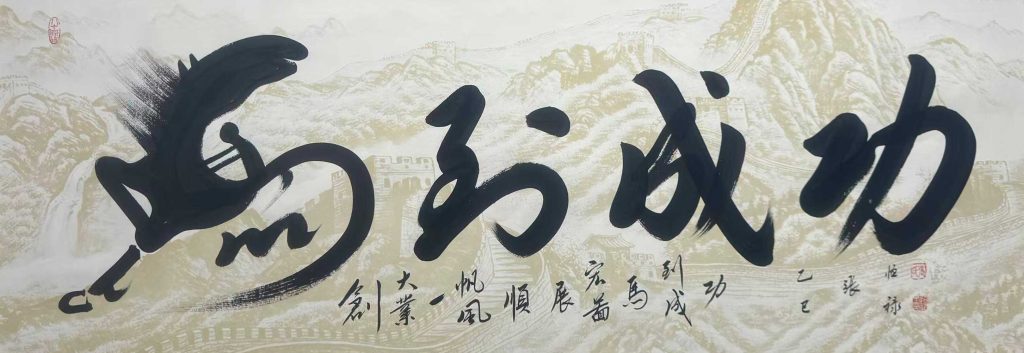 馬到成功
創大業一帆風順展宏圖馬到成功
乙巳 張恒禄